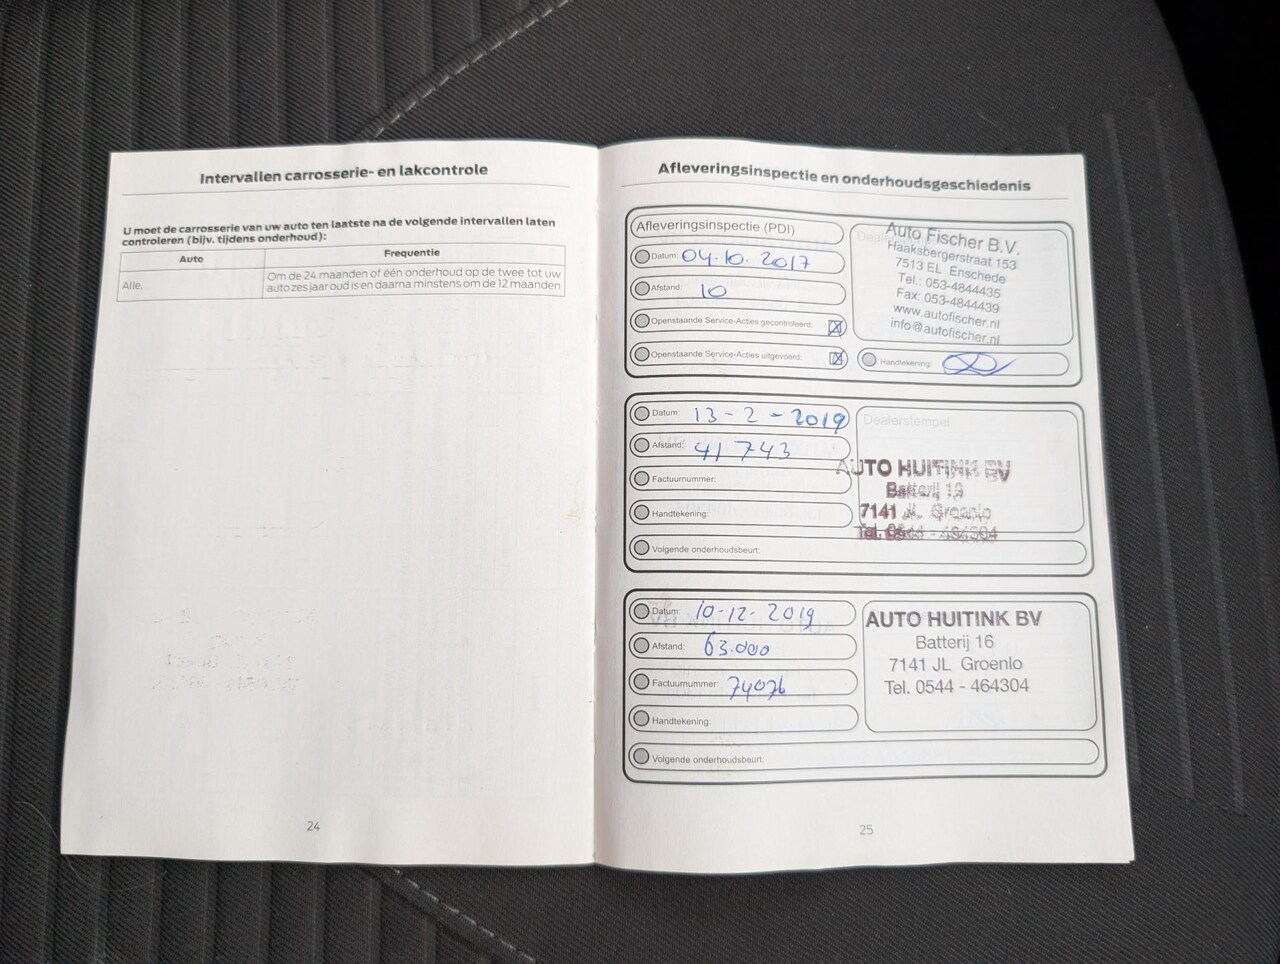 Intervallen carrosserie- en lakcontrole
U moet de carrosserie van uw auto ten laatste na de volgende intervallen laten
controleren (bijv. tijdens onderhoud):
Auto
Frequentie
Alle.
Om de 24 maanden of één onderhoud op de twee tot uw
auto zes jaar oud is en daarna minstens om de 12 maanden
24
Afleveringsinspectie en onderhoudsgeschiedenis
Afleveringsinspectie (PDI)
Datum: 04.10.2017
Afstand: 10
Openstaande Service-Acties gecontroleerd:
Openstaande Service-Acties uitgevoerd:
Auto Fischer B.V.
Haaksbergerstraat 153
7513 EL Enschede
Tel.: 053-4844435
Fax: 053-4844439
www.autofischer.nl
info@autofischer.nl
Handtekening:
Datum: 13-2-2019
Afstand: 41743
Factuurnummer:
Handtekening:
Volgende onderhoudsbeurt:
Dealerstempel
AUTO HUITINK BV
Batterij 16
7141 JL Groenlo
Tel. 0544 - 464304
Datum: 10-12-2019
Afstand: 63.000
Factuurnummer: 74076
Handtekening:
Volgende onderhoudsbeurt:
AUTO HUITINK BV
Batterij 16
7141 JL Groenlo
Tel. 0544 - 464304
25